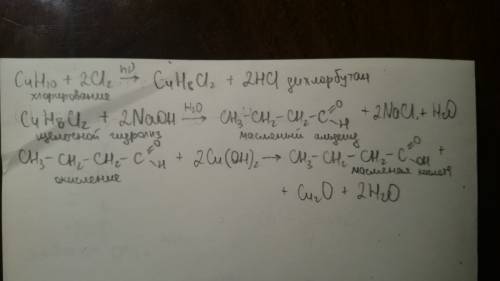 C₄H₁₀ + 2Cl₂ —hν→ C₄H₈Cl₂ + 2HCl дихлорбутан
хлорирование
C₄H₈Cl₂ + 2NaOH —H₂O→ CH₃-CH₂-CH₂-C=O -H + 2NaCl + H₂O
щелочной гидролиз масляный альдегид
CH₃-CH₂-CH₂-C=O -H + 2Cu(OH)₂ → CH₃-CH₂-CH₂-C=O -OH +
окисление масляная кислота
+ Cu₂O + 2H₂O